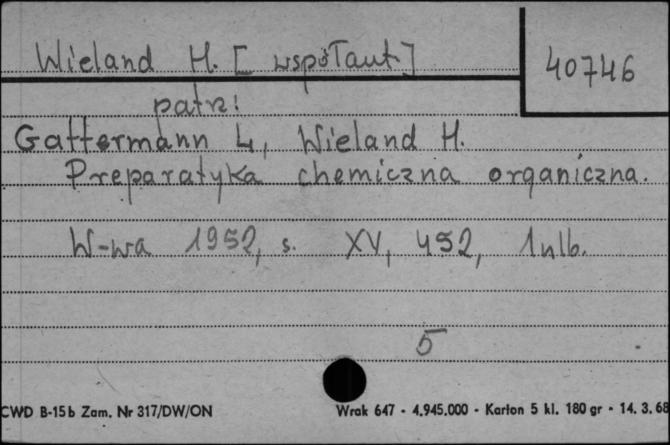 Wieland H. [współaut]
40746
patrz:
Gattermann L, Wieland H.
Preparatyka chemiczna organiczna.
W-wa 1952, s. XV, 452, 1nlb.
5
CWD B-15b Zam. Nr 317/DW/ON
Wrak 647 - 4.945.000 - Karton 5 kl. 180 gr - 14. 3. 68